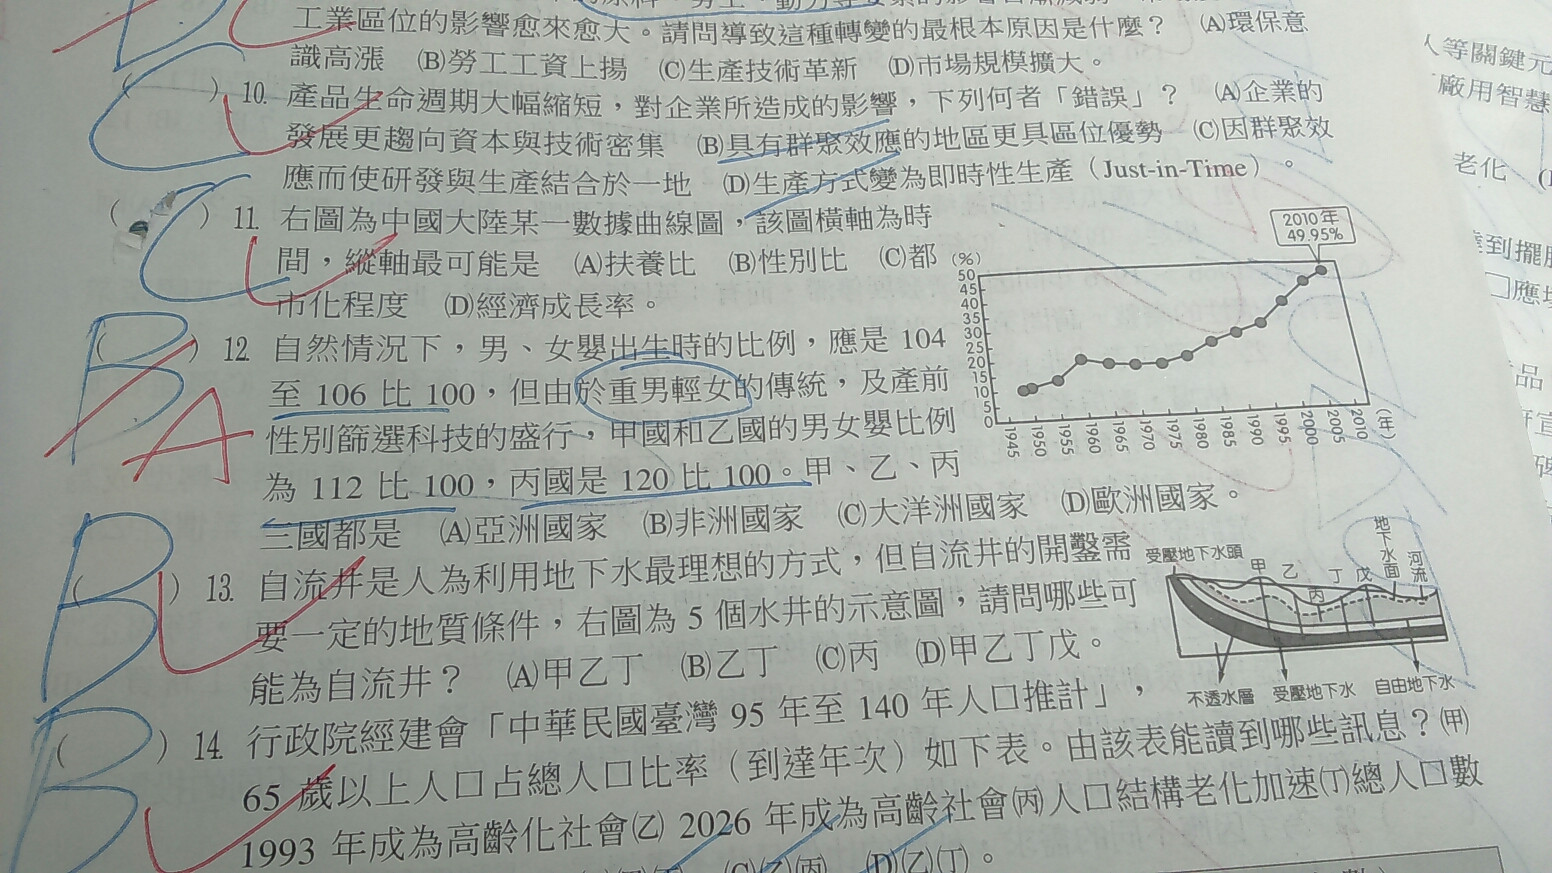 工業區位的影響愈來愈大。請問導致這種轉變的最根本原因是什麼？ (A)環保意
識高漲 (B)勞工工資上揚 (C)生產技術革新 (D)市場規模擴大。
C ( ) 10. 產品生命週期大幅縮短，對企業所造成的影響，下列何者「錯誤」？ (A)企業的
發展更趨向資本與技術密集 (B)具有群聚效應的地區更具區位優勢 (C)因群聚效
應而使研發與生產結合於一地 (D)生產方式變為即時性生產（Just-in-Time）。
C ( ) 11. 右圖為中國大陸某一數據曲線圖，該圖橫軸為時
間，縱軸最可能是 (A)扶養比 (B)性別比 (C)都
市化程度 (D)經濟成長率。
2010年
49.95%
(%)
50
45
40
35
30
25
20
15
10
5
0
1945 1950 1955 1960 1965 1970 1975 1980 1985 1990 1995 2000 2005 2010 (年)
B ( ) 12. 自然情況下，男、女嬰出生時的比例，應是 104
至 106 比 100，但由於重男輕女的傳統，及產前
A
性別篩選科技的盛行，甲國和乙國的男女嬰比例
為 112 比 100，丙國是 120 比 100。甲、乙、丙
三國都是 (A)亞洲國家 (B)非洲國家 (C)大洋洲國家 (D)歐洲國家。
B ( ) 13. 自流井是人為利用地下水最理想的方式，但自流井的開鑿需
要一定的地質條件，右圖為 5 個水井的示意圖，請問哪些可
能為自流井？ (A)甲乙丁 (B)乙丁 (C)丙 (D)甲乙丁戊。
受壓地下水頭
甲 乙 丙 丁 戊
地下水面
河流
不透水層 受壓地下水 自由地下水
B ( ) 14. 行政院經建會「中華民國臺灣 95 年至 140 年人口推計」，
65 歲以上人口占總人口比率（到達年次）如下表。由該表能讀到哪些訊息？(甲)
1993 年成為高齡化社會(乙) 2026 年成為高齡社會(丙)人口結構老化加速(丁)總人口數
(C)(乙)(丙) (D)(乙)(丁)。
人等關鍵元
廠用智慧
老化